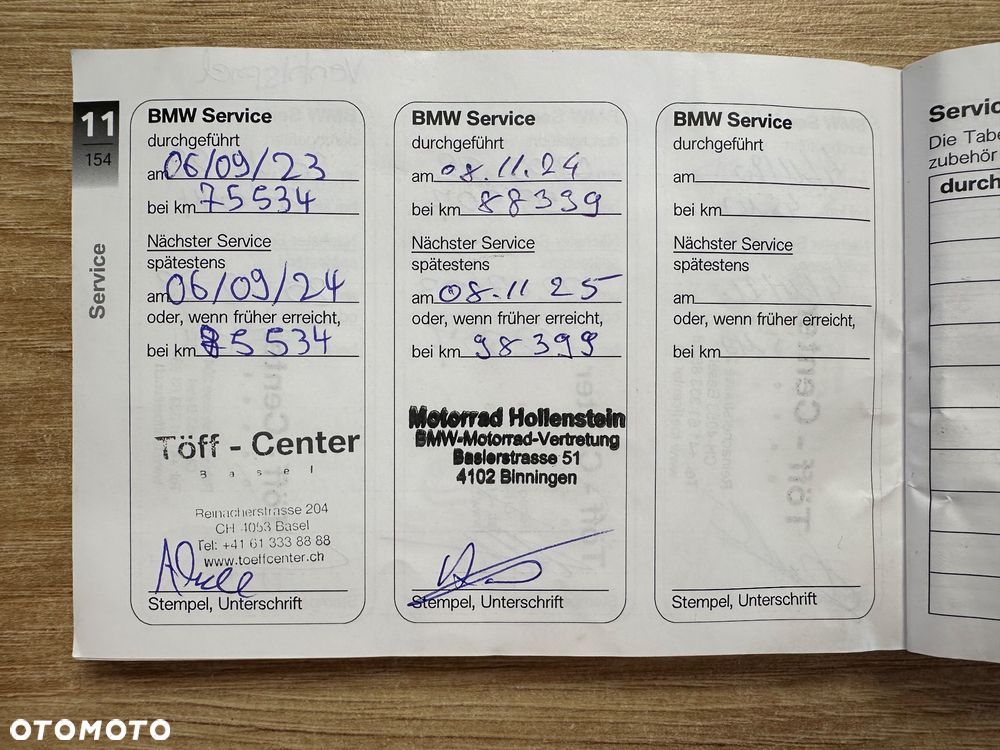 11
154
Service
BMW Service
durchgeführt
am 06/09/23
bei km 75534
Nächster Service
spätestens
am 06/09/24
oder, wenn früher erreicht,
bei km 85534
Töff - Center
Basel
Reinacherstrasse 204
CH 4053 Basel
Tel: +41 61 333 88 88
www.toeffcenter.ch
Stempel, Unterschrift
BMW Service
durchgeführt
am 08.11.24
bei km 88399
Nächster Service
spätestens
am 08.11 25
oder, wenn früher erreicht,
bei km 98399
Motorrad Hollenstein
BMW-Motorrad-Vertretung
Baslerstrasse 51
4102 Binningen
Stempel, Unterschrift
BMW Service
durchgeführt
am
bei km
Nächster Service
spätestens
am
oder, wenn früher erreicht,
bei km
Stempel, Unterschrift
Servic
Die Tabe
zubehör
durch
OTOMOTO